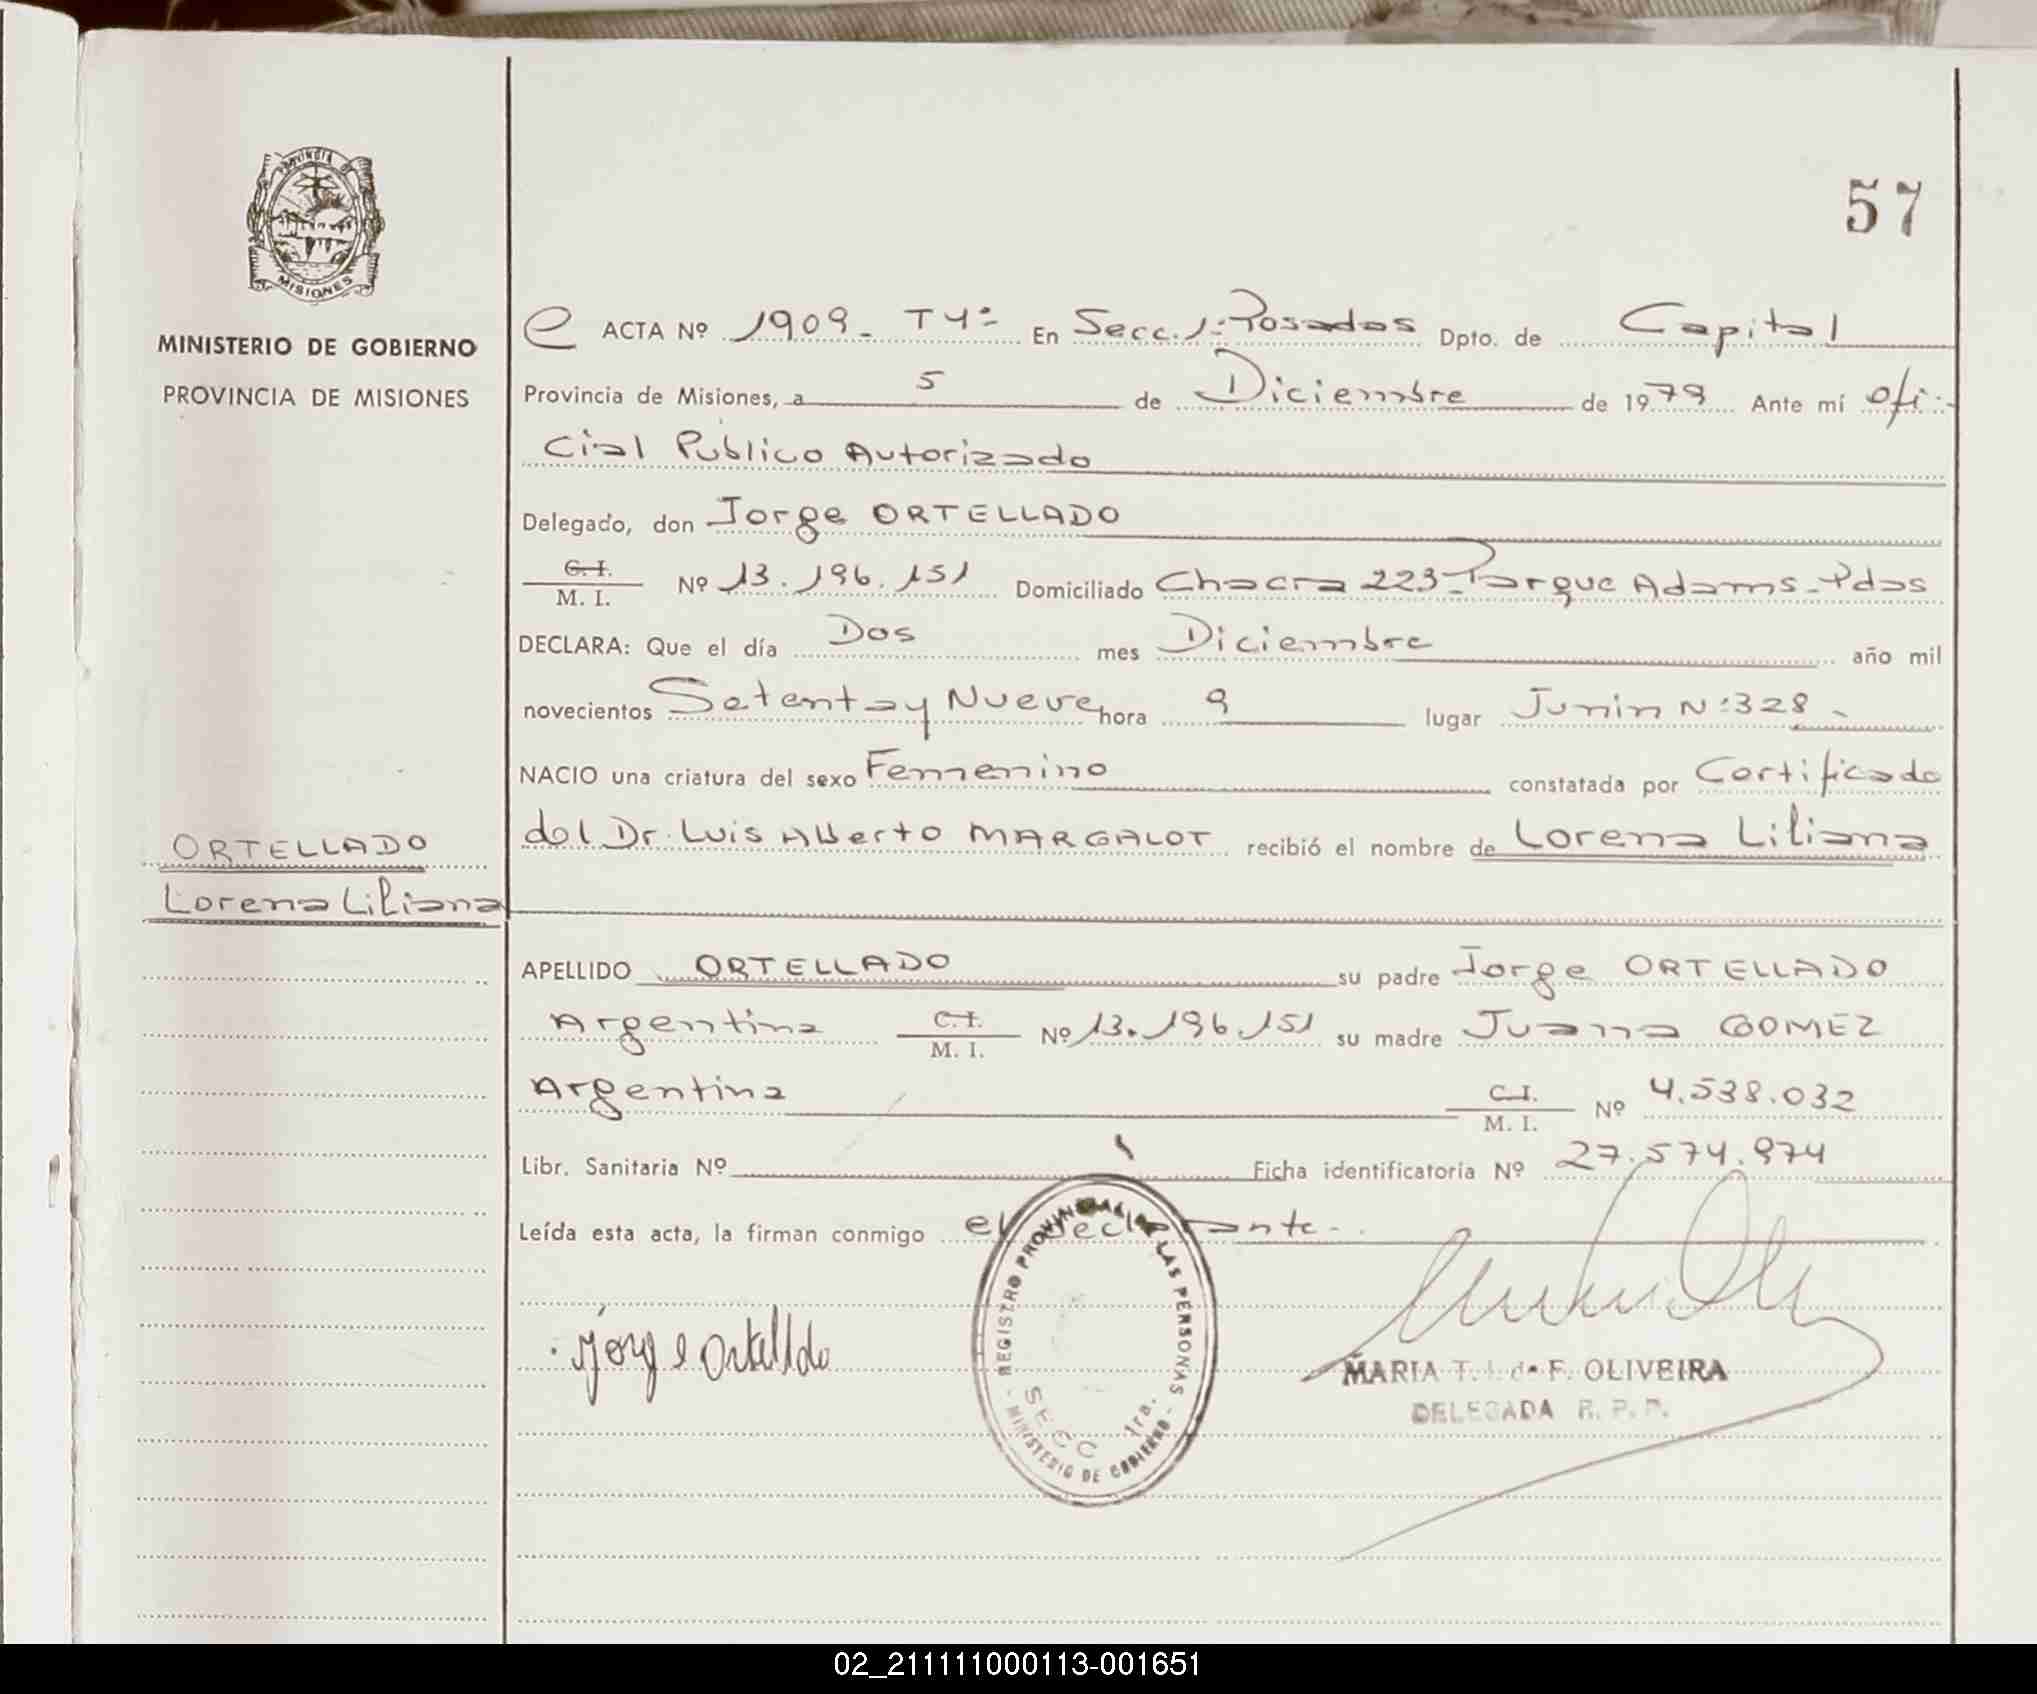 PROVINCIA DE
MISIONES
MINISTERIO DE GOBIERNO
PROVINCIA DE MISIONES
ORTELLADO
Lorena Liliana
57
ACTA Nº 1909. T4º En Secc. 1ª Posadas Dpto. de Capital
Provincia de Misiones, a 5 de Diciembre de 1979 Ante mí ofi-
cial Público Autorizado
Delegado, don Jorge ORTELLADO
C. I. / M. I. Nº 13.196.151 Domiciliado Chacra 223-Parque Adams-Pdas
DECLARA: Que el día Dos mes Diciembre año mil
novecientos Setenta y Nueve hora 9 lugar Junin Nº 328 -
NACIO una criatura del sexo Femenino constatada por Certificado
del Dr. Luis Alberto MARGALOT recibió el nombre de Lorena Liliana
APELLIDO ORTELLADO su padre Jorge ORTELLADO
Argentina C. I. / M. I. Nº 13.196.151 su madre Juana GOMEZ
Argentina C. I. / M. I. Nº 4.538.032
Libr. Sanitaria Nº Ficha identificatoria Nº 27.574.974
Leída esta acta, la firman conmigo el declarante.
REGISTRO PROVINCIAL DE LAS PERSONAS
SECC 1ra.
- MINISTERIO DE GOBIERNO -
Jorge Ortelldo
MARIA T. de F. OLIVEIRA
DELEGADA R. P. P.
02_211111000113-001651